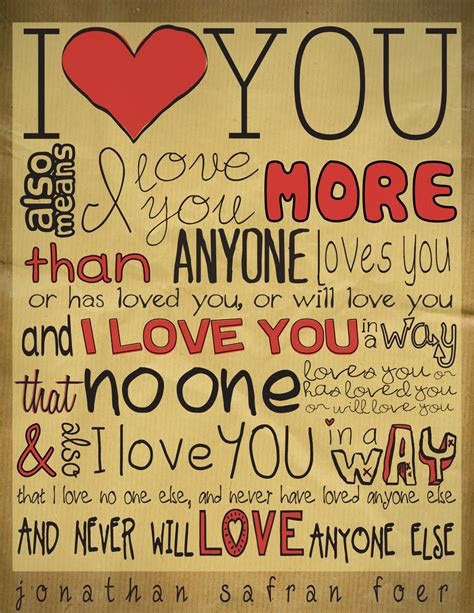 I ♥ YOU
also means I love you MORE
than ANYONE loves you
or has loved you, or will love you
and I LOVE YOU in a way
that no one loves you or has loved you or will love you
& also I love YOU in a WAY
that I love no one else, and never have loved anyone else
AND NEVER WILL LOVE ANYONE ELSE
jonathan safran foer